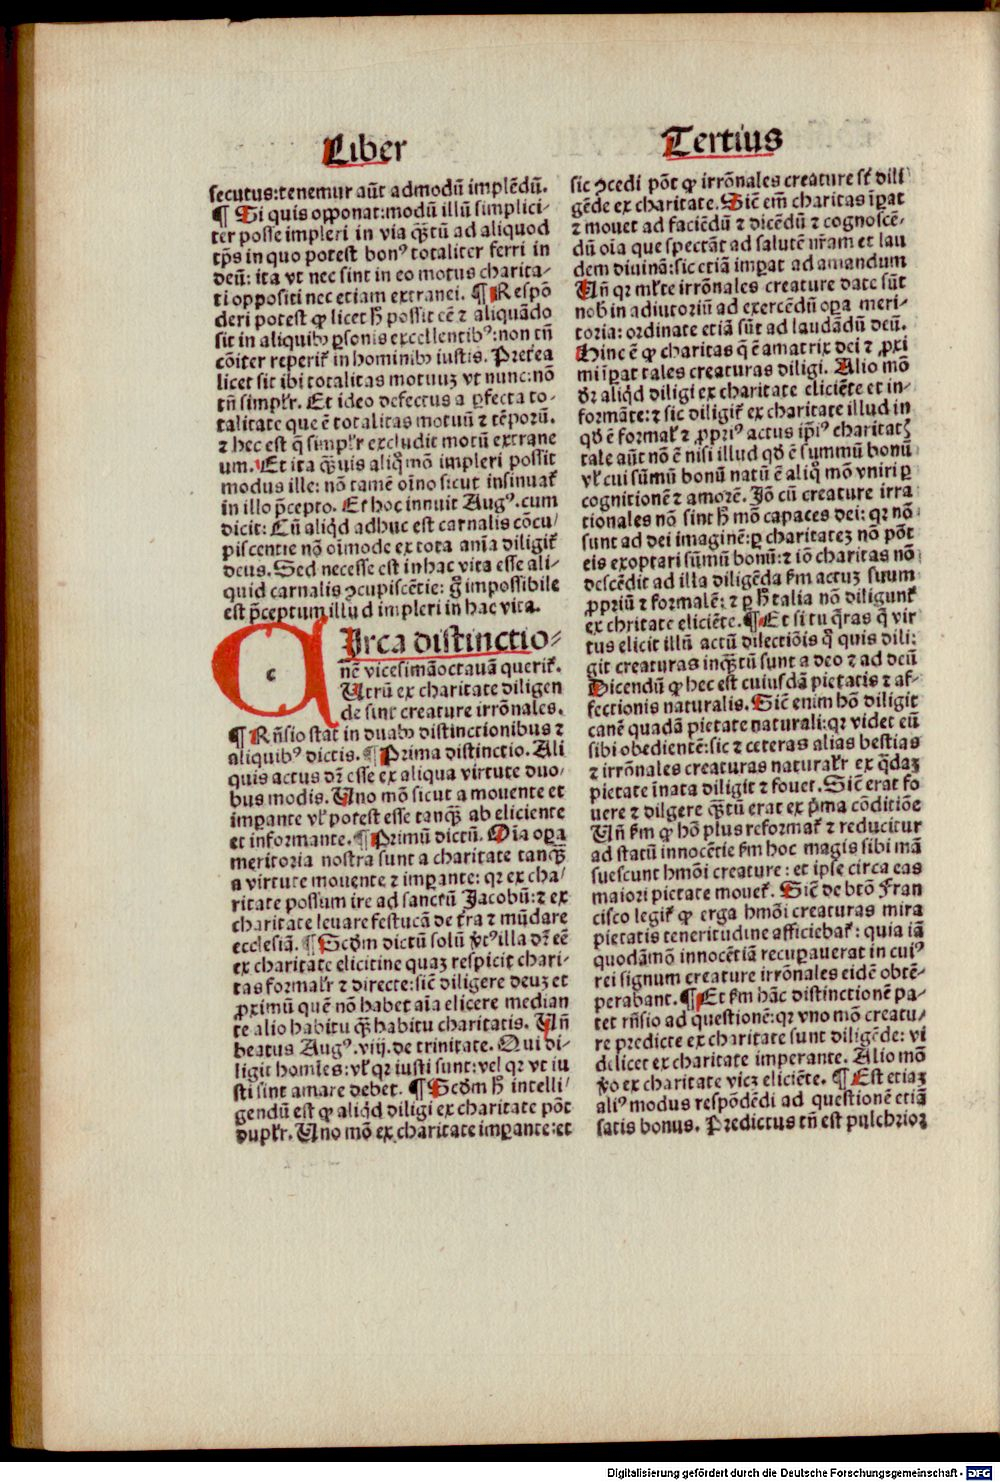 Liber
Tertius
secutus:tenemur aũt admodũ implẽdũ.
¶ Si quis opponat:modũ illũ simplici-
ter posse impleri in via q̃tũ ad aliquod
tp̃s in quo potest bonꝰ totaliter ferri in
deũ: ita vt nec sint in eo motus charita-
ti oppositi nec etiam extranei. ¶ Respõ
deri potest ꝙ licet h̃ possit eẽ ⁊ aliquãdo
sit in aliquibꝫ ꝑsonis excellentibꝰ:non tñ
cõiter reperit̃ in hominibꝫ iustis. Preťea
licet sit ibi totalitas motuuꝫ vt nunc:nõ
tñ simpl̃r. Et ideo defectus a ꝑfecta to-
talitate que ẽ totalitas motuũ ⁊ tẽporũ.
⁊ hec est q̃ simpl̃r excludit motũ extrane
um. Et ita q̃uis aliq̃ mõ impleri possit
modus ille: nõ tamẽ oĩno sicut insinuat̃
in illo p̃cepto. Et hoc innuit Augꝰ. cum
dicit: Cũ aliqd̃ adhuc est carnalis cõcu/
piscentie nõ oĩmode ex tota anĩa diligit̃
deus. Sed necesse est in hac vita esse ali-
quid carnalis ꝯcupiscẽtie: g̃ impossibile
est p̃ceptum illud impleri in hac vita.
c
Irca distinctio-
nẽ vicesimãoctauã querit̃.
Utrũ ex charitate diligen
de sint creature irrõnales.
¶ Rñsio stat in duabꝫ distinctionibus ⁊
aliquibꝰ dictis. ¶ Prima distinctio. Ali
quis actus dr̃ esse ex aliqua virtute duo/
bus modis. Uno mõ sicut a mouente et
imꝑante vl̃ potest esse tanq̃ ab eliciente
et informante. ¶ Primũ dictũ. Oĩa oꝑa
meritoria nostra sunt a charitate tanq̃
a virtute mouente ⁊ imꝑante: qꝛ ex cha/
ritate possum ire ad sanctũ Jacobũ: ⁊ ex
charitate leuare festucã de ťra ⁊ mũdare
ecclesiã. ¶ Scd̃m dictũ solũ ꝟtꝰ illa dr̃ eẽ
ex charitate elicitine quaꝫ respicit chari-
tas formal̃r ⁊ directe: sic̃ diligere deuꝫ et
ꝓximũ quẽ nõ habet aĩa elicere median
te alio habitu q̃ habitu charitatis. Uñ
beatus Augꝰ. viij. de trinitate. Qui di-
ligit homĩes: vl̃ qꝛ iusti sunt: vel qꝛ vt iu
sti sint amare debet. ¶ Scd̃m h̃ intelli/
gendũ est ꝙ aliqd̃ diligi ex charitate põt
dupl̃r. Uno mõ ex charitate imꝑante: et
sic ꝯcedi põt ꝙ irrõnales creature st̃ dili
gẽde ex charitate. Sic̃ em̃ charitas ĩꝑat
⁊ mouet ad faciẽdũ ⁊ dicẽdũ ⁊ cognoscẽ-
dũ oĩa que spectãt ad salutẽ nr̃am et lau
dem diuinã: sic etiã imꝑat ad amandum
Uñ qꝛ ml̃te irrõnales creature date sũt
nob̃ in adiutoriũ ad exercẽdũ oꝑa meri-
toria: ordinate etiã sũt ad laudãdũ deũ.
Hinc ẽ ꝙ charitas q̃ ẽ amatrix dei ⁊ ꝓxi
mi ĩꝑat tales creaturas diligi. Alio mõ
dr̃ aliqd̃ diligi ex charitate eliciẽte et in-
formãte: ⁊ sic diligit̃ ex charitate illud in
qd̃ ẽ formal̃ ⁊ ꝓpriꝰ actus ip̃iꝰ charitatꝭ
tale aũt nõ ẽ nisi illud qd̃ ẽ summũ bonũ
vl̃ cui sũmũ bonũ natũ ẽ aliq̃ mõ vniri ꝑ
cognitionẽ ⁊ amorẽ. Jõ cũ creature irra
tionales nõ sint h̃ mõ capaces dei: qꝛ nõ
sunt ad dei imaginẽ: ꝑ charitateꝫ nõ põt
eis exoptari sũmũ bonũ: ⁊ iõ charitas nõ
descẽdit ad illa diligẽda s̃m actuꝫ suum
ꝓpriũ ⁊ formalẽ: ⁊ ꝑ h̃ talia nõ diligunt̃
ex chritate eliciẽte. ¶ Et si tu q̃ras q̃ vir
tus elicit illũ actũ dilectiõis q̃ quis dili:
git creaturas inq̃tũ sunt a deo ⁊ ad deũ
Dicendũ ꝙ hec est cuiusdã pietatis ⁊ af-
fectionis naturalis. Sic̃ enim hõ diligit
canẽ quadã pietate naturali: qꝛ videt eũ
sibi obedientẽ: sic ⁊ ceteras alias bestias
⁊ irrõnales creaturas natural̃r ex q̃daꝫ
pietate ĩnata diligit ⁊ fouet. Sic̃ erat fo
uere ⁊ dilgere q̃tũ erat ex p̃ma cõditiõe
Uñ s̃m ꝙ hõ plus reformat̃ ⁊ reducitur
ad statũ innocẽtie s̃m hoc magis sibi mã
suescunt hmõi creature: et ipse circa eas
maiori pietate mouet̃. Sic̃ de btõ Fran
cisco legit̃ ꝙ erga hmõi creaturas mira
pietatis teneritudine afficiebat̃: quia iã
quodãmõ innocẽtiã recuꝑauerat in cuiꝰ
rei signum creature irrõnales eidẽ obtẽ-
perabant. ¶ Et s̃m hãc distinctionẽ pa-
tet rñsio ad questionẽ: qꝛ vno mõ creatu/
re predicte ex charitate sunt diligẽde: vi
delicet ex charitate imperante. Alio mõ
ꝟo ex charitate vicꝫ eliciẽte. ¶ Est etiaꝫ
aliꝰ modus respõdẽdi ad questionẽ etiã
satis bonus. Predictus tñ est pulchrior
Digitalisierung gefördert durch die Deutsche Forschungsgemeinschaft - DFG